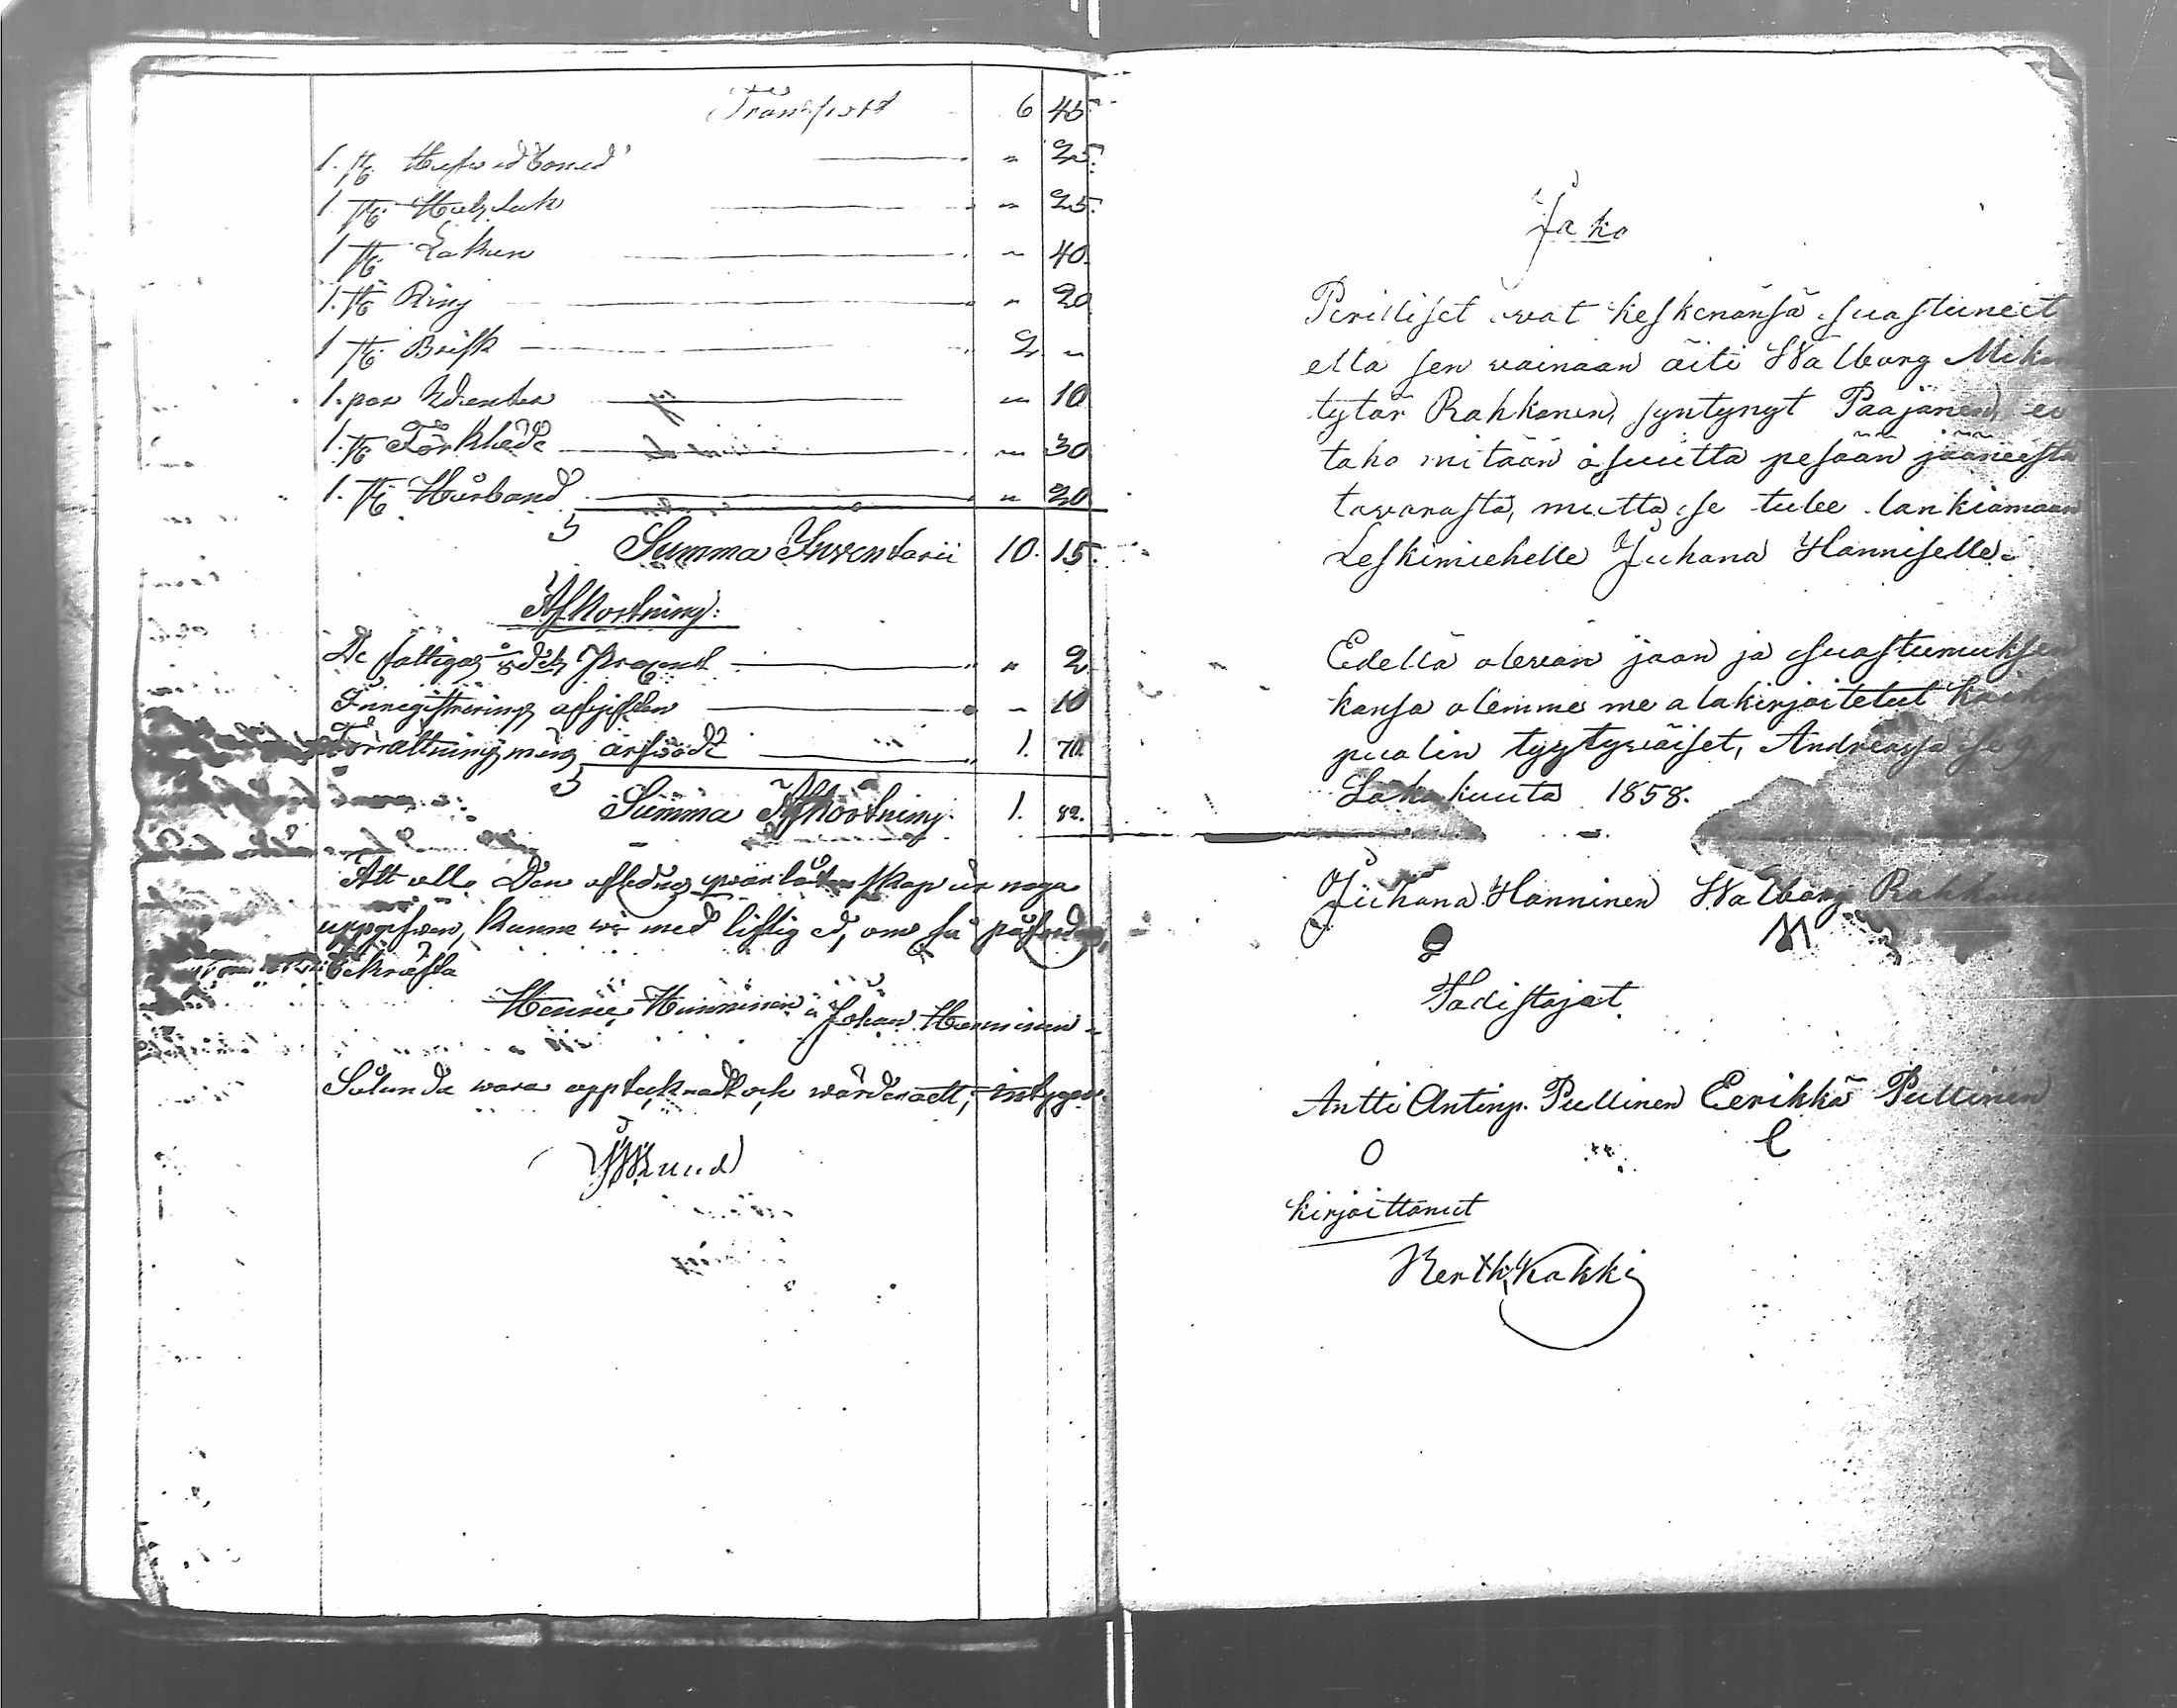 Transport 6 45.
1. st. Hufvudbonad " 25.
1 st. Halsduk " 25.
1 st. Lakan " 40.
1. st. Ring " 20
1 st. Brisk 2 "
1. par Wantar " 10
1. st. Förkläde " 30
1. st. Hårband " 20
Summa Inventarii 10. 15.
Afkortning:
De fattigas Procent " 2
Inregistrerings afgiften " 10
Förrättningsmäns arfvode 1. 70.
Summa Afkortning 1. 82.
Att all Den aflednes qvarlåtenskap är noga
uppgifven, kunne wi med liflig ed, om så påfordras,
bekräfta
Hanninen Johan Hanninen
Sålunda wara upptecknadt och wärderadt, intygar
Jako
Perilliset owat keskenänsä suostuneet
että sen wainaan äiti Walborg Mikon
tytär Rahkonen, syntynyt Paajanen, ei
taho mitään osuutta pesään jääneestä
tawarasta, mutta se tulee lankiamaan
Leskimiehelle Juhana Hanniselle.
Edellä olewan jaon ja suostumuksen
kansa olemme me alakirjoitetut
puolin tyytywäiset,
Lokakuuta 1858.
Juhana Hanninen Walborg Rahkonen
Todistajat
Antti Antinp. Pullinen Eerikkä Pullinen
kirjoittanut
Kokki